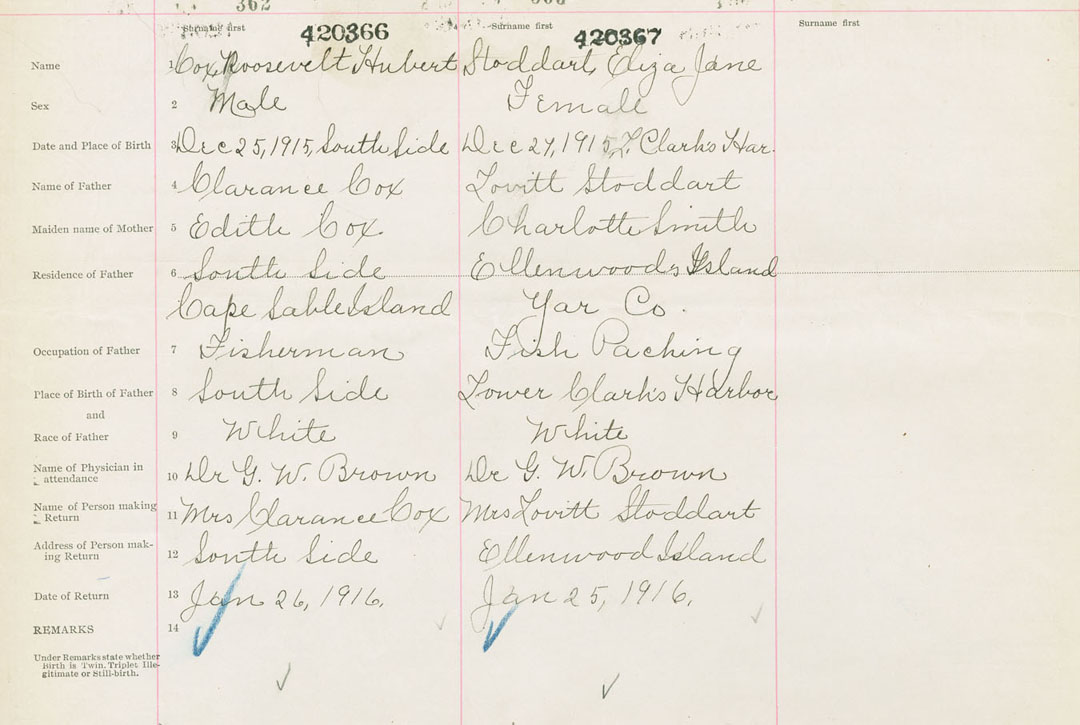 362
Surname first 420366 Surname first 420367 Surname first
Name 1 Cox, Roosevelt Hubert Stoddart, Eliza Jane
Sex 2 Male Female
Date and Place of Birth 3 Dec 25, 1915, South Side Dec 27, 1915, L. Clark's Har.
Name of Father 4 Clarance Cox Lovitt Stoddart
Maiden name of Mother 5 Edith Cox. Charlotte Smith
Residence of Father 6 South Side Ellenwoods Island
Cape Sable Island Yar Co.
Occupation of Father 7 Fisherman Fish Packing
Place of Birth of Father 8 South Side Lower Clark's Harbor
and
Race of Father 9 White White
Name of Physician in
attendance 10 Dr G. W. Brown Dr G. W. Brown
Name of Person making
Return 11 Mrs Clarance Cox Mrs Lovitt Stoddart
Address of Person mak-
ing Return 12 South Side Ellenwood Island
Date of Return 13 Jan 26, 1916. Jan 25, 1916.
REMARKS 14
Under Remarks state whether
Birth is Twin, Triplet Ille-
gitimate or Still-birth.